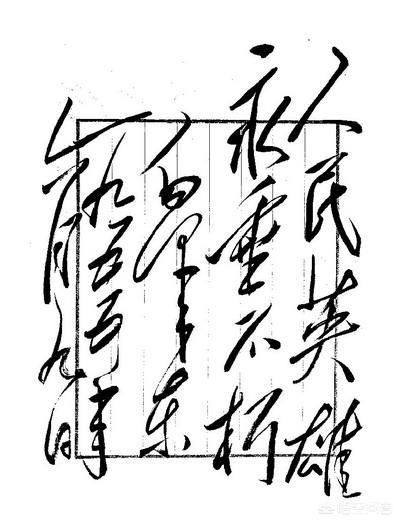 人民英雄
永垂不朽
毛泽东
一九五五年
六月九日
悟空问答